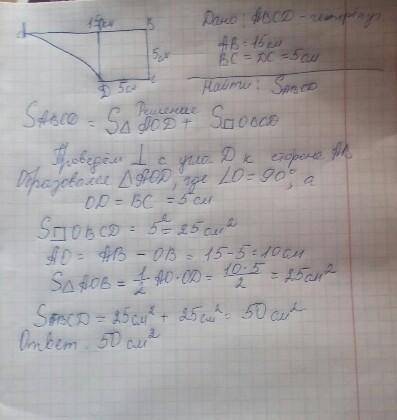 A 15см B
Дано: ABCD - четырёхуг.
AB = 15см
BC = DC = 5см
5см
D 5см C
Найти: SABCD
Решение
SABCD = S△ AOD + S□ OBCD
Проведём ⊥ с угла D к стороне AB
Образовался △AOD, где ∠O = 90°, а
OD = BC = 5см
S□OBCD = 5² = 25см²
AO = AB - OB = 15 - 5 = 10см
S△AOB = 1/2 AO·OD = 10·5/2 = 25см²
SABCD = 25см² + 25см² = 50см²
Ответ: 50см²